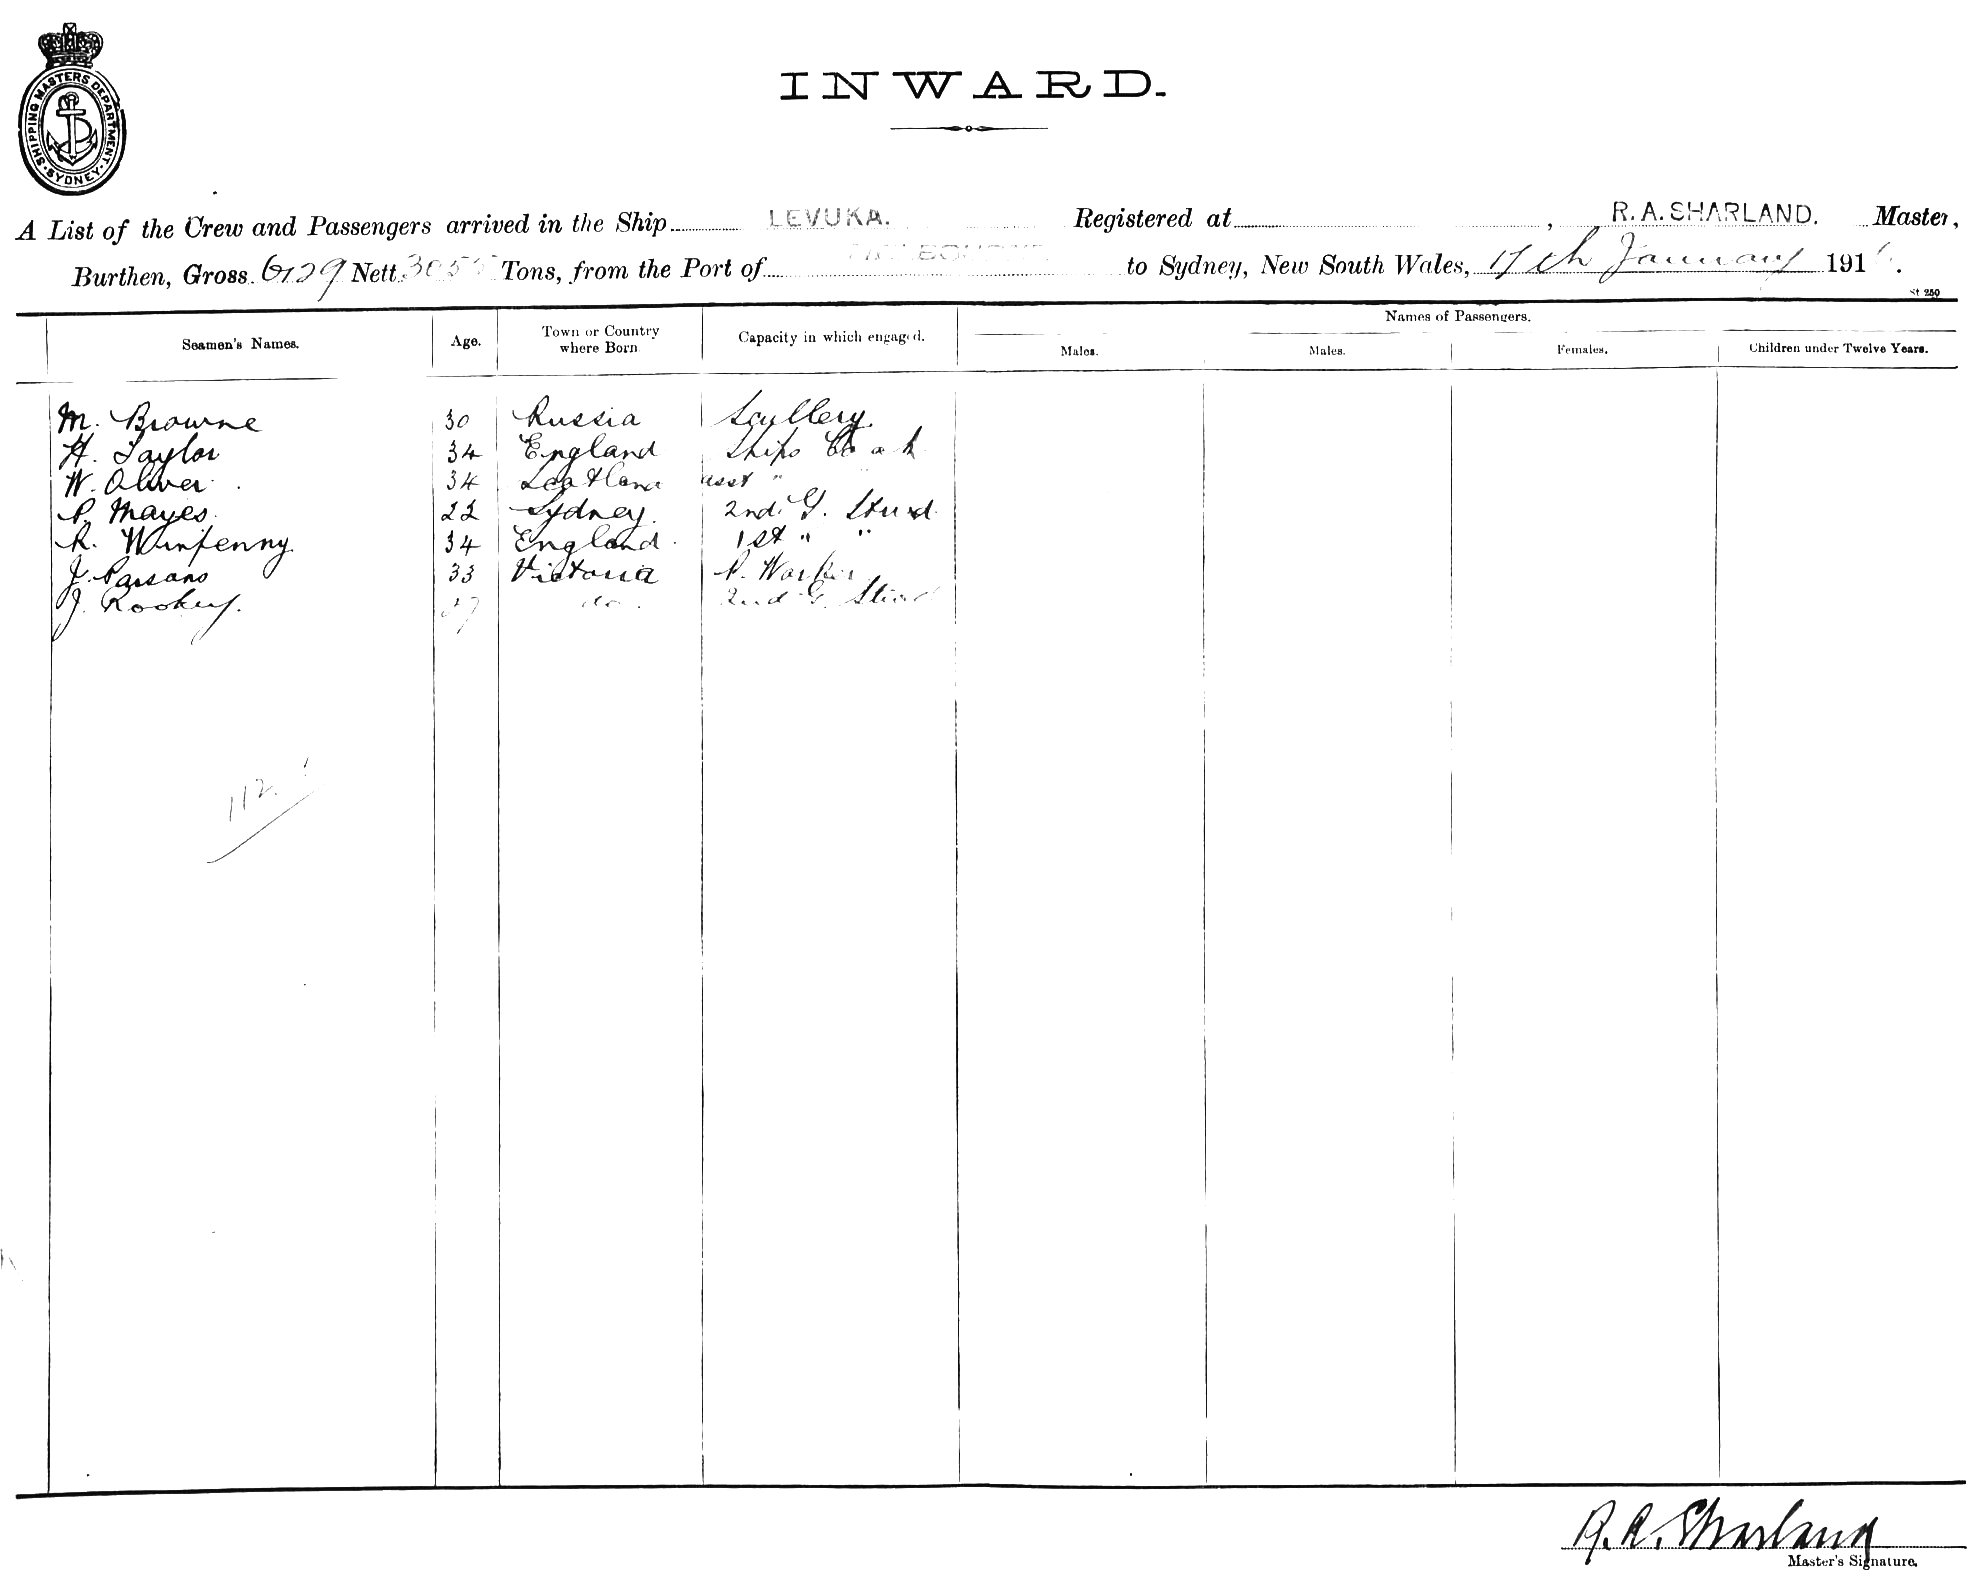 SHIPPING MASTERS DEPARTMENT. SYDNEY.
INWARD.
A List of the Crew and Passengers arrived in the Ship LEVUKA. Registered at , R. A. SHARLAND. Master,
Burthen, Gross 6129 Nett Tons, from the Port of to Sydney, New South Wales, 17th January 191 .
St 250
Seamen's Names. Age. Town or Country where Born Capacity in which engaged. Names of Passengers.
Males. Males. Females. Children under Twelve Years.
M. Browne 30 Russia Scullery
H. Taylor 34 England Ships Cook
W. Oliver 34 Scotland asst "
P. Mayes 22 Sydney. 2nd G. Stwd.
R. Winpenny 34 England. 1st " "
J. Parsons 33 Victoria P. Worker
J. Rookey. 27 do. 2nd G. Stwd
112.
R. A. Sharland
Master's Signature.